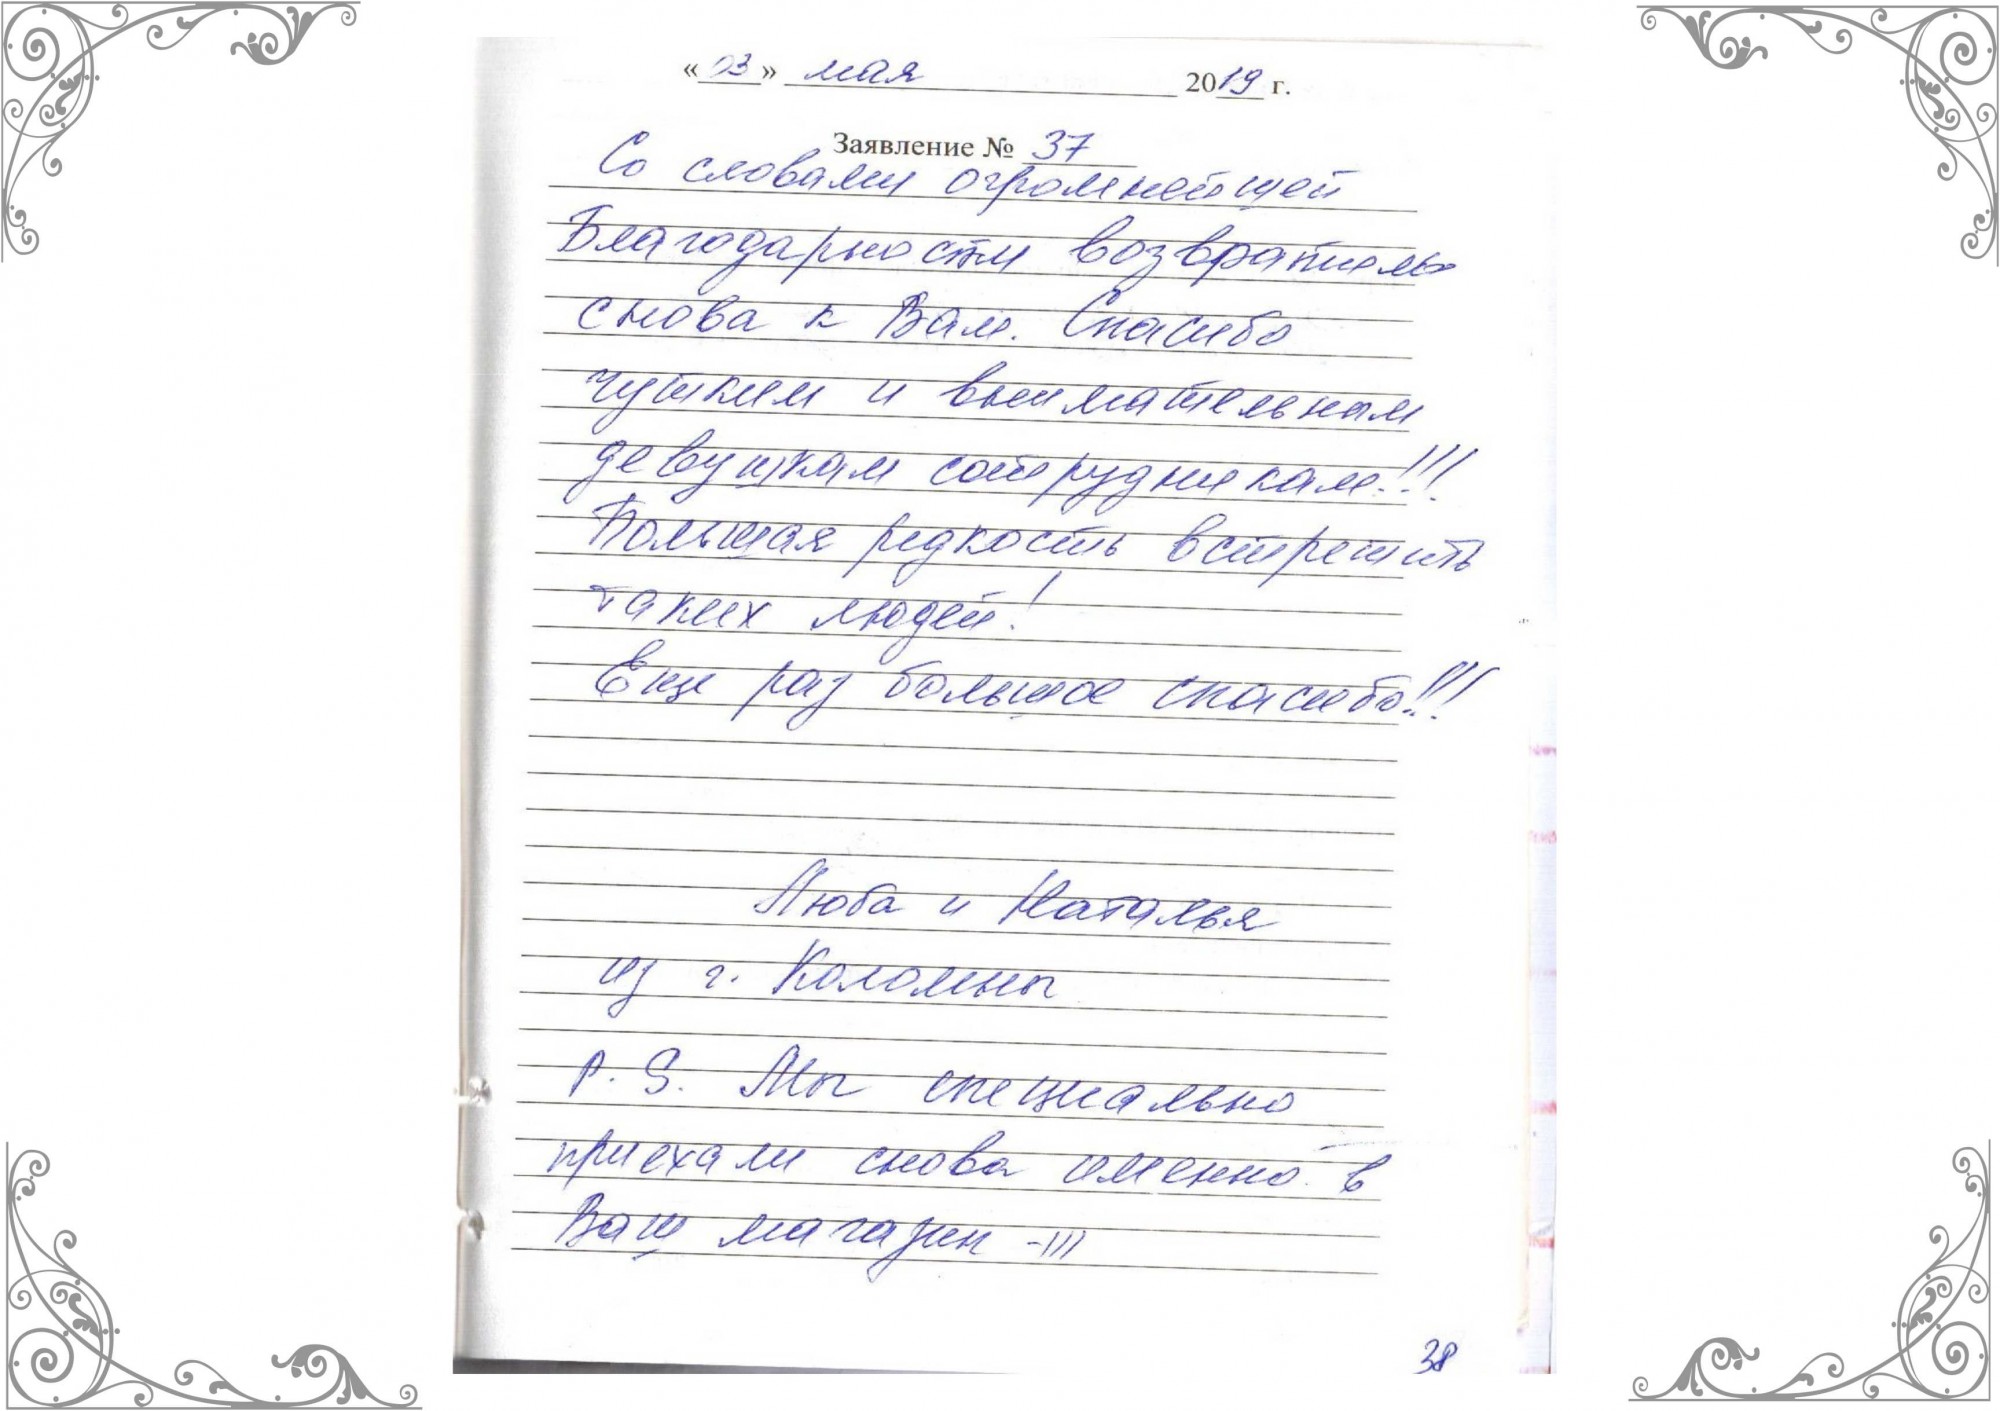 « 03 » мая 2019 г.
Заявление № 37
Со словами огромнейшей
Благодарности возвратились
снова к Вам. Спасибо
чутким и внимательным
девушкам сотрудникам!!!
Большая редкость встретить
таких людей!
Еще раз большое спасибо!!!
Люба и Наталья
из г. Коломны
P. S. Мы специально
приехали снова именно в
Ваш магазин -)))
38